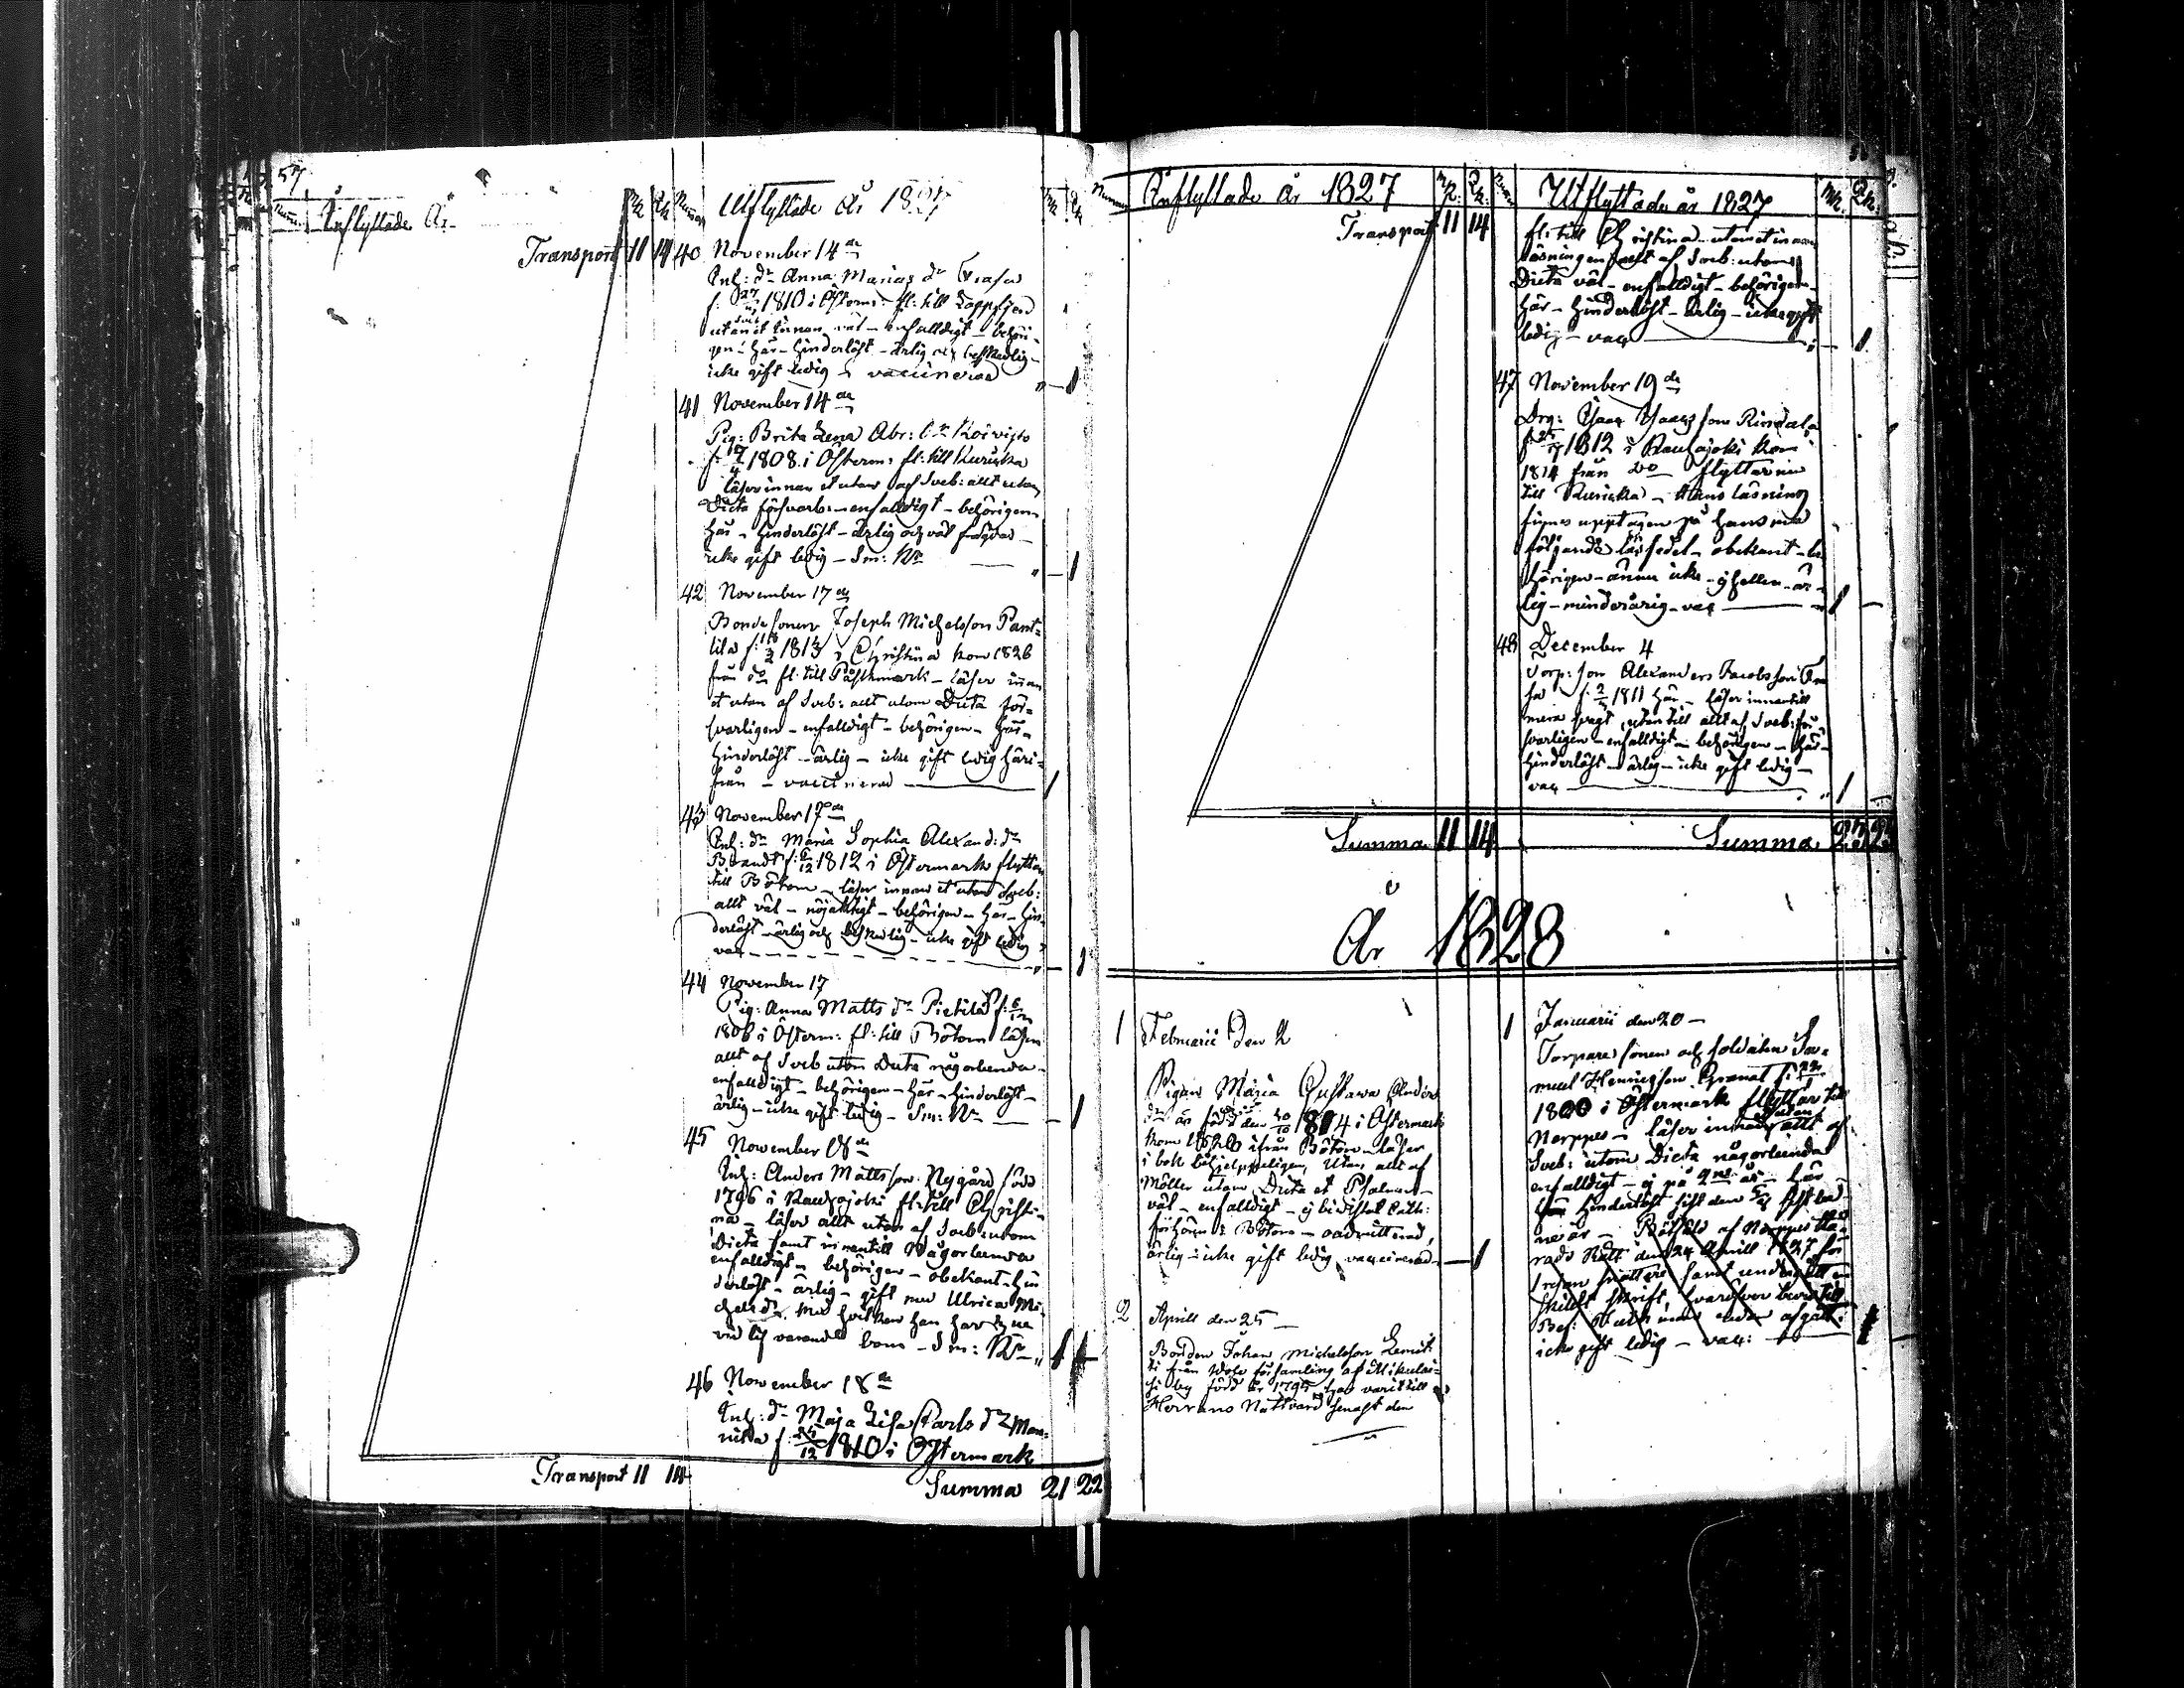 57
Num: Inflyttade År
Mk Qk
Transport 11 14
Num Utflyttade År 1827 Mk Qk
40 November 14 de
Inh: dr Anna Marias dr
f. 27 1810 i Österm: fl: till Lappfjerd
utan et innan väl - enfalldigt - behöri-
gen - här - hinderlöst - ärlig och beskedlig -
icke gift ledig - vaccinerad " - 1
41 November 14 de
Pig: Brita Lena Abr: dr Koivisto
f: 1808 i Österm: fl: till Kurikka
läser innan et utan af Sveb: allt utom
Dicta försvarb: - enfalldigt - behörigen
här - hinderlöst - ärlig och väl frägdad -
icke gift ledig - Sm: Kr " - 1
42 November 17 de
Bondesonen Joseph Michelsson Pant-
tila f: 1813 i Christina kom 1826
från do fl: till Påhlmark - läser innan
et utan af Sveb: allt utom Dicta för-
svarligen - enfalldigt - behörigen - här -
hinderlöst - ärlig - icke gift ledig häri-
från - vaccinerad 1
43 November 17 de
Inh: dr Maria Sophia Alexand: dr
Brandt f: 6/12 1812 i Östermark flyttar
till Bötom - läser innan et utan Sveb:
allt väl - nöjaktigt - behörigen - här - hin-
derlöst - ärlig och beskedlig - icke gift ledig
vac " - 1
44 November 17
Pig: Anna Matts dr Pietilä f: 6/12
1806 i Österm: fl: till Bötom läser
allt af Sveb utom Dicta någorlunda -
enfalldigt - behörigen - här - hinderlöst -
ärlig - icke gift ledig - Sm: Kr - 1
45 November 18 de
Inh: Anders Mattsson Nygård född
1796 i Kauhajoki fl: till Christi-
na - läser allt utan af Sveb: utom
Dicta samt innantill Någorlunda
enfalldigt - behörigen - obekant - hin
derlöst - ärlig - gift med Ulrica Mi-
chels dr med hvilken han har
vid lif varande barn - Sm: Kr " 1 1
46 November 18 de
Inh: dr Maja Lisa Carls dr Man-
nila f: 25/12 1810 i Östermark
Transport 11 14
Summa 21 22
Num Inflyttade År 1827 Mk. Qk.
Transport 11 14
Num Utflyttade år 1827 Mk. Qk.
fl: till Christina - utom et innan
läsningen allt af Sveb: utom
Dicta väl - enfalldigt - behörigen -
här - hinderlöst - ärlig - icke gift
ledig - vac " - 1
47 November 19 de
Drg: Isaac Isacsson Rindala
f 1812 i Kauhajoki kom
1814 från do flyttar nu
till Kurikka - Hans läsning
finnes upptagen på hans med
följande läsesedel - obekant - be
hörigen - ännu icke - ej heller - är-
lig - minderårig - vac " 1 -
48 December 4
Torp: son Alexanders Jacobsson
f: 1811 här - läser innantill
mera trögt utantill allt af Sveb: för
svarligen - enfalldigt - behörigen - här -
hinderlöst - ärlig - icke gift ledig -
vac " 1
Summa 11 14
Summa
År 1828
1 Februarii Den 2
Pigan Maria Gustava Anders
dr är född den 1814 i Östermark
kom ifrån Bötom - läser
i bok behjelpeligen Utan allt af
Möller utom Dicta et Psalmen -
väl - enfalldigt - ej bivistat Cath:
förhören i Bötom - oadmitterad,
ärlig - icke gift ledig vaccinerad - - 1
2 Aprill den 25 -
Bonden Johan Michelsson
från församling af
by född år 1795 har varit till
Herrans Nattvard senast den
1 Januarii den 20 -
Torpare sonen och soldaten Sa-
muel Henricsson Granat f: 22
1800 i Östermark flyttar till
Nerpes - läser innan utan allt af
Sveb: utom Dicta någorlunda
enfalldigt - ej på 2ne år - här -
hinderlöst gift den sistled-
ne år - af Nerpes Hä-
rads Rätt den 24 Aprill 1827 för
samt undergått en
skildt skrift
icke gift ledig - vac: 1